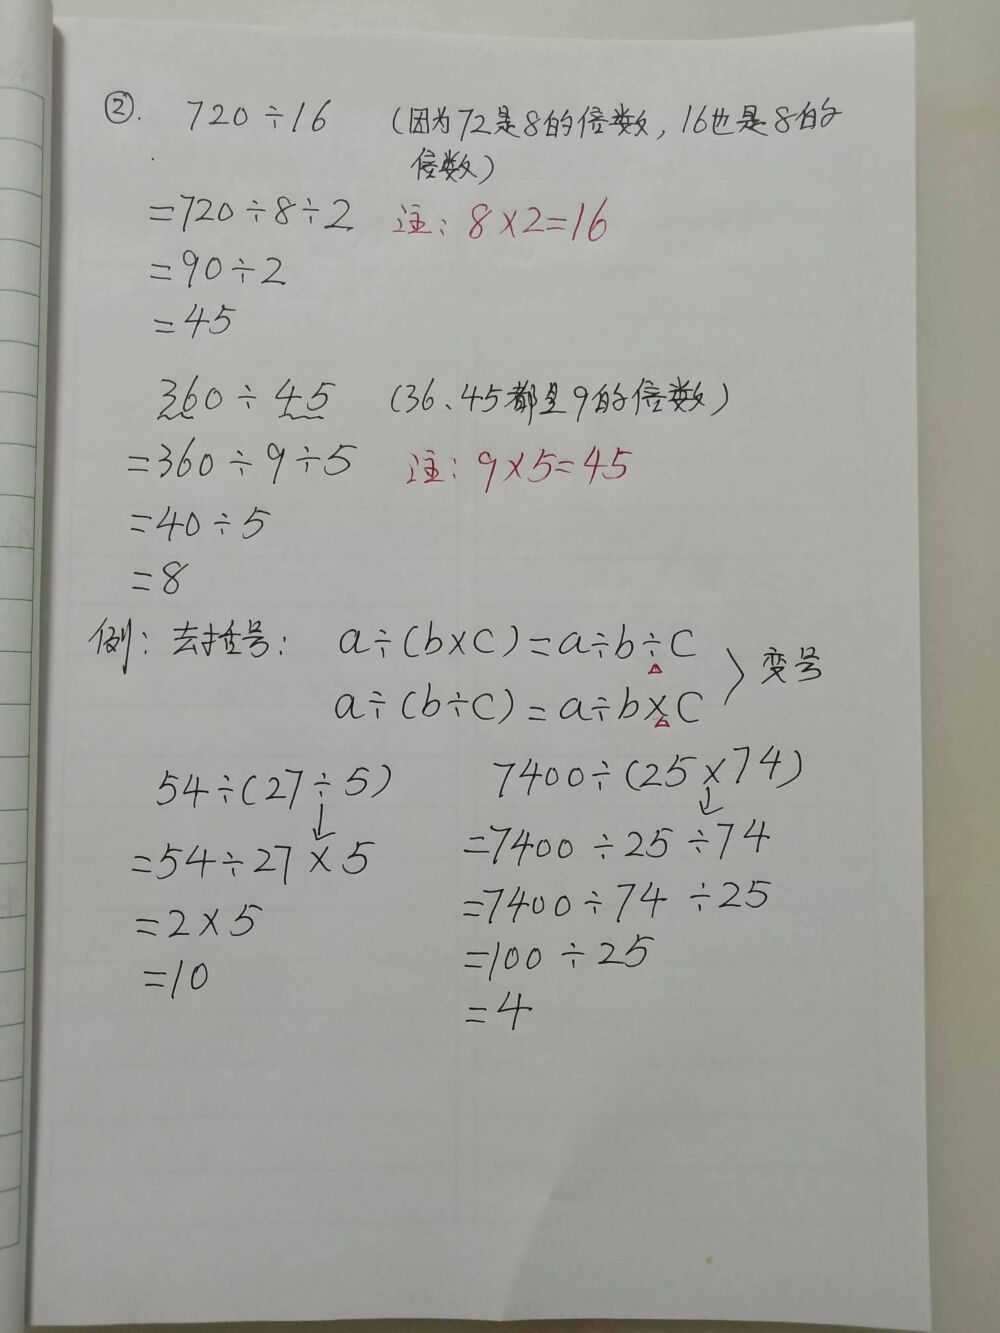 ②. 720÷16 (因为72是8的倍数,16也是8的
倍数)
=720÷8÷2 注:8×2=16
=90÷2
=45
360÷45 (36、45都是9的倍数)
=360÷9÷5 注:9×5=45
=40÷5
=8
例:去括号: a÷(b×c)=a÷b÷c
a÷(b÷c)=a÷b×c
变号
54÷(27÷5)
=54÷27×5
=2×5
=10
7400÷(25×74)
=7400÷25÷74
=7400÷74÷25
=100÷25
=4